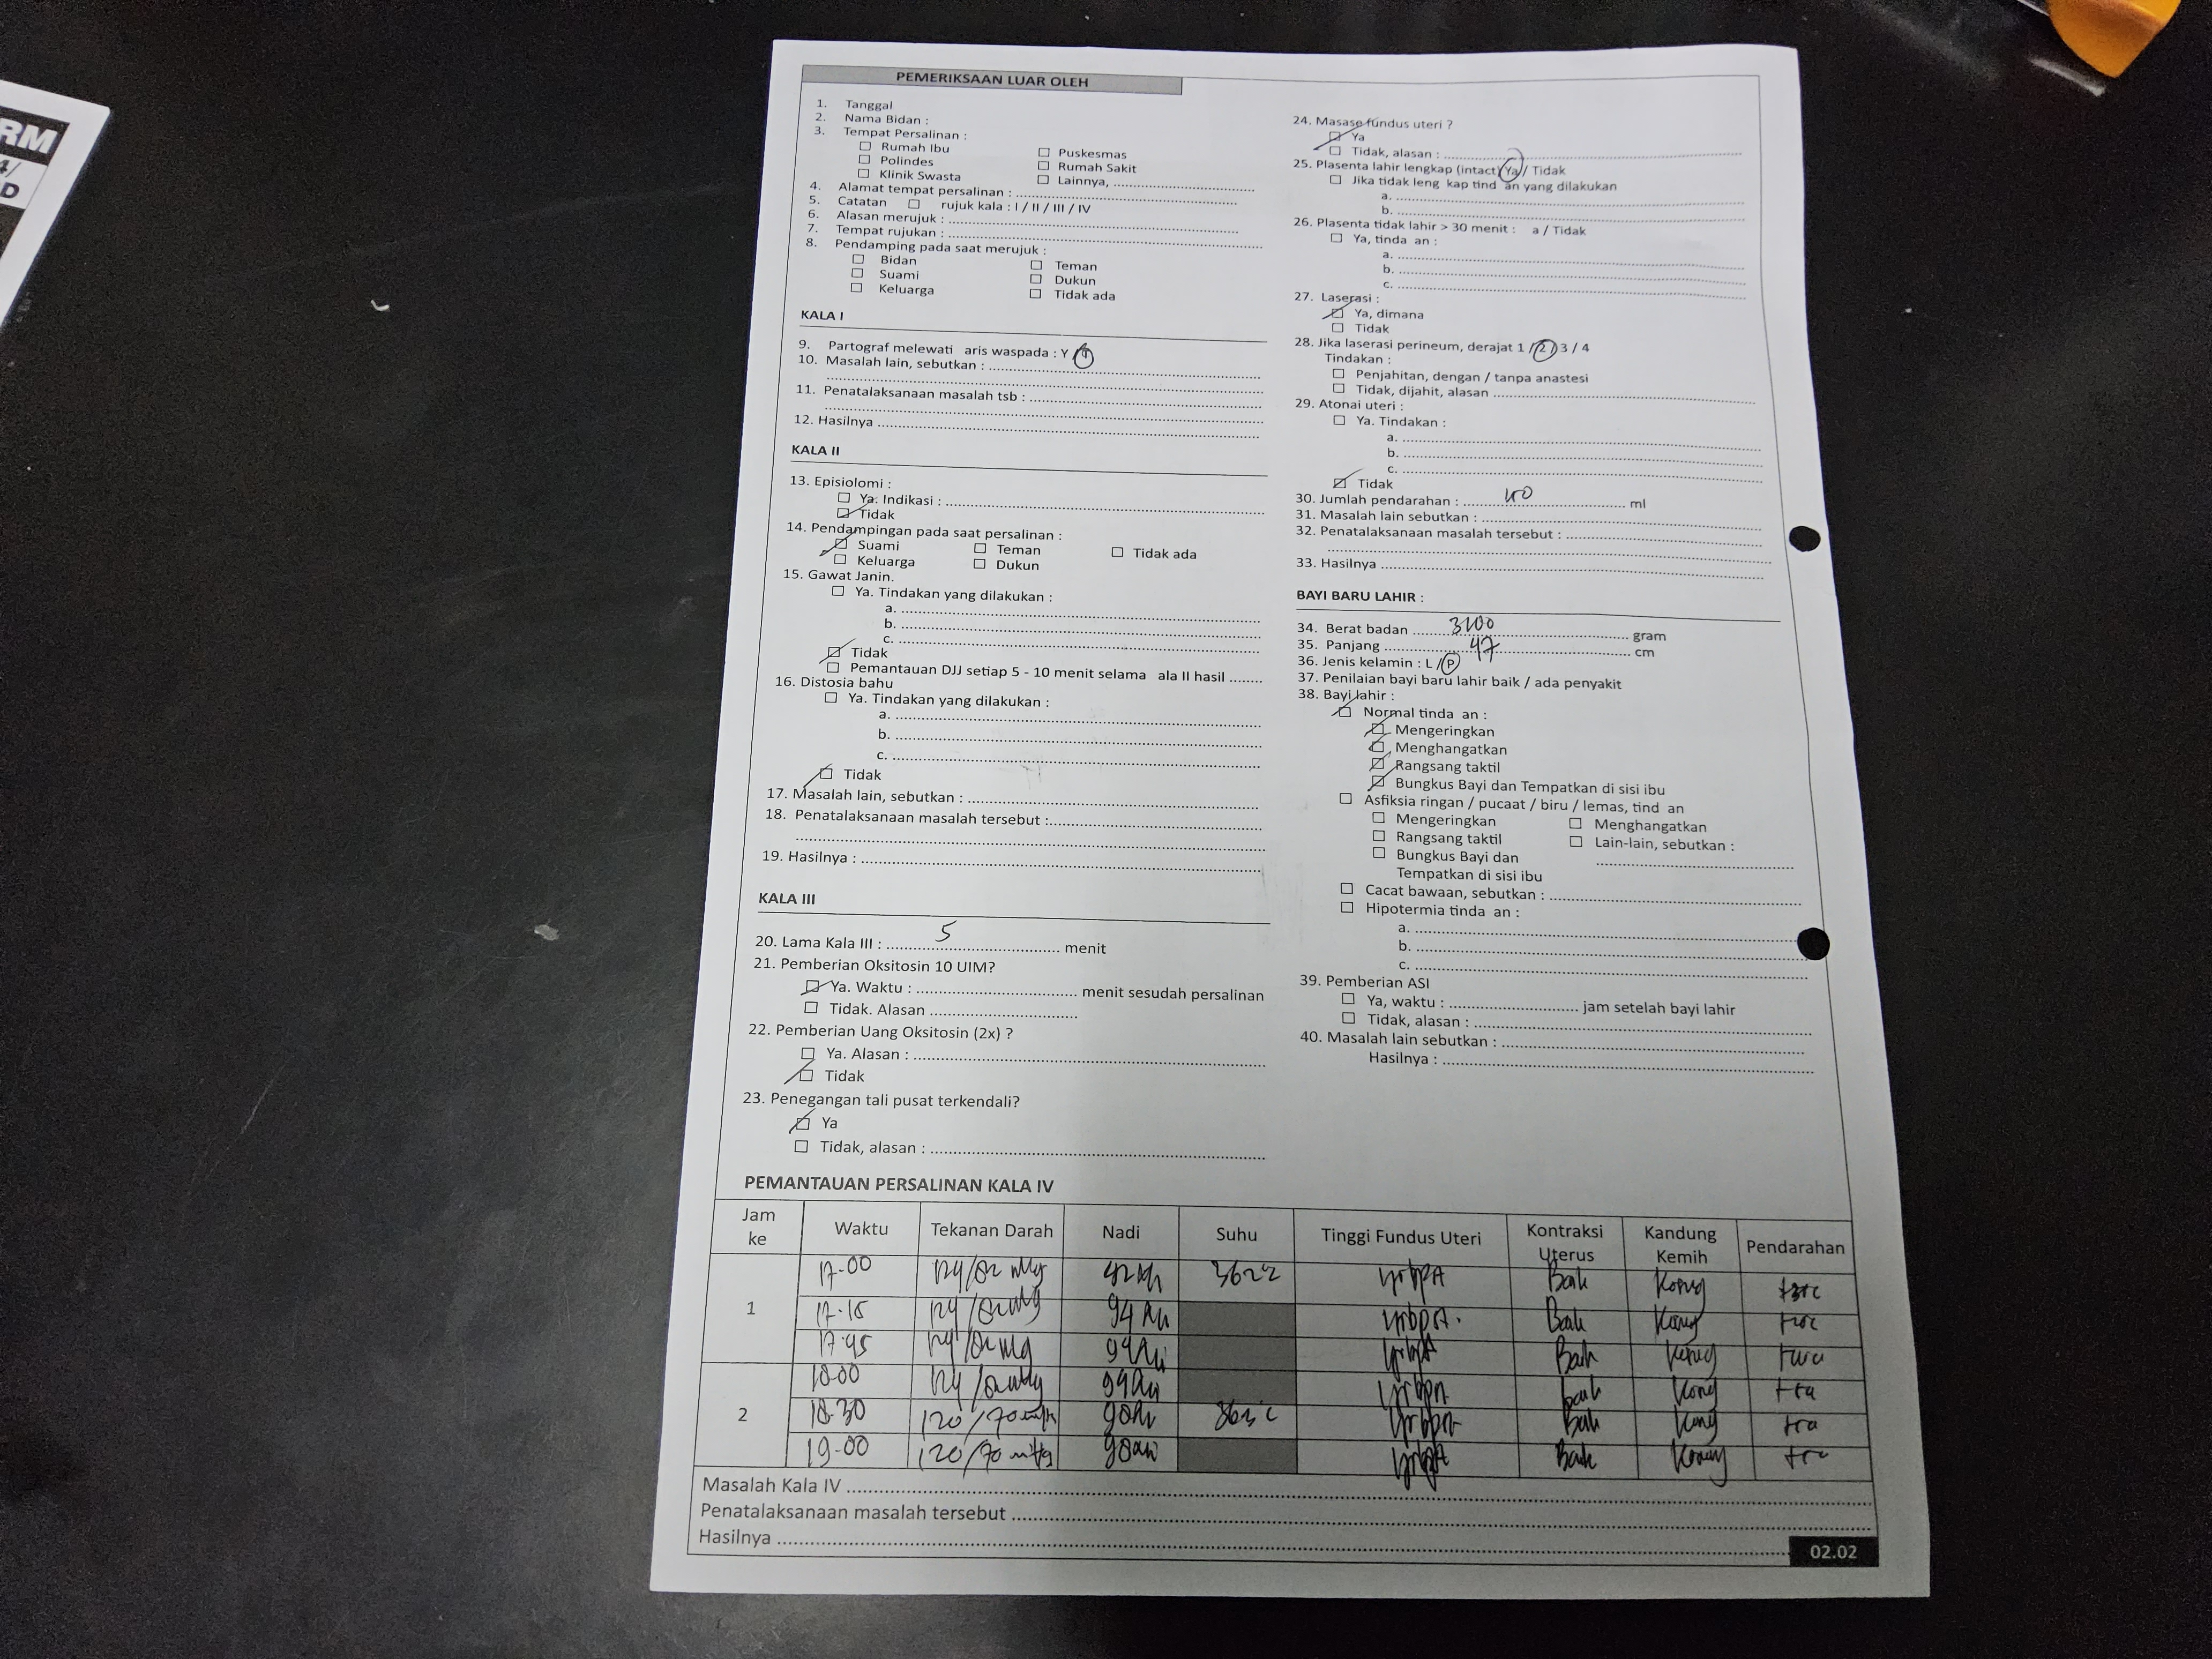 RM
4/
D
PEMERIKSAAN LUAR OLEH
1. Tanggal
2. Nama Bidan :
3. Tempat Persalinan :
Rumah Ibu
Puskesmas
Polindes
Rumah Sakit
Klinik Swasta
Lainnya, ........
4. Alamat tempat persalinan : ........
5. Catatan rujuk kala : I / II / III / IV
6. Alasan merujuk : ........
7. Tempat rujukan : ........
8. Pendamping pada saat merujuk :
Bidan
Teman
Suami
Dukun
Keluarga
Tidak ada
KALA I
9. Partograf melewati aris waspada : Y
10. Masalah lain, sebutkan : ........
11. Penatalaksanaan masalah tsb : ........
12. Hasilnya ........
KALA II
13. Episiolomi :
Ya. Indikasi : ........
Tidak
14. Pendampingan pada saat persalinan :
Suami
Teman
Tidak ada
Keluarga
Dukun
15. Gawat Janin.
Ya. Tindakan yang dilakukan :
a. ........
b. ........
c. ........
Tidak
Pemantauan DJJ setiap 5 - 10 menit selama ala II hasil ........
16. Distosia bahu
Ya. Tindakan yang dilakukan :
a. ........
b. ........
c. ........
Tidak
17. Masalah lain, sebutkan : ........
18. Penatalaksanaan masalah tersebut : ........
19. Hasilnya : ........
KALA III
20. Lama Kala III : 5 menit
21. Pemberian Oksitosin 10 UIM?
Ya. Waktu : ........ menit sesudah persalinan
Tidak. Alasan ........
22. Pemberian Uang Oksitosin (2x) ?
Ya. Alasan : ........
Tidak
23. Penegangan tali pusat terkendali?
Ya
Tidak, alasan : ........
24. Masase fundus uteri ?
Ya
Tidak, alasan : ........
25. Plasenta lahir lengkap (intact) Ya / Tidak
Jika tidak leng kap tind an yang dilakukan
a. ........
b. ........
26. Plasenta tidak lahir > 30 menit : a / Tidak
Ya, tinda an :
a. ........
b. ........
c. ........
27. Laserasi :
Ya, dimana
Tidak
28. Jika laserasi perineum, derajat 1 / 2 / 3 / 4
Tindakan :
Penjahitan, dengan / tanpa anastesi
Tidak, dijahit, alasan ........
29. Atonai uteri :
Ya. Tindakan :
a. ........
b. ........
c. ........
Tidak
30. Jumlah pendarahan : ........ ml
31. Masalah lain sebutkan : ........
32. Penatalaksanaan masalah tersebut : ........
33. Hasilnya ........
BAYI BARU LAHIR :
34. Berat badan ........ gram
35. Panjang 47 cm
36. Jenis kelamin : L / P
37. Penilaian bayi baru lahir baik / ada penyakit
38. Bayi lahir :
Normal tinda an :
Mengeringkan
Menghangatkan
Rangsang taktil
Bungkus Bayi dan Tempatkan di sisi ibu
Asfiksia ringan / pucaat / biru / lemas, tind an
Mengeringkan
Menghangatkan
Rangsang taktil
Lain-lain, sebutkan :
Bungkus Bayi dan
Tempatkan di sisi ibu
Cacat bawaan, sebutkan : ........
Hipotermia tinda an :
a. ........
b. ........
c. ........
39. Pemberian ASI
Ya, waktu : ........ jam setelah bayi lahir
Tidak, alasan : ........
40. Masalah lain sebutkan : ........
Hasilnya : ........
PEMANTAUAN PERSALINAN KALA IV
Jam ke Waktu Tekanan Darah Nadi Suhu Tinggi Fundus Uteri Kontraksi Uterus Kandung Kemih Pendarahan
1 17-00 Baik
17-15 94 Baik
17-45 Baik
2 18-00 baik
18-30 120/70 Baik
19-00 120/70 mmHg Baik
Masalah Kala IV ........
Penatalaksanaan masalah tersebut ........
Hasilnya ........
02.02